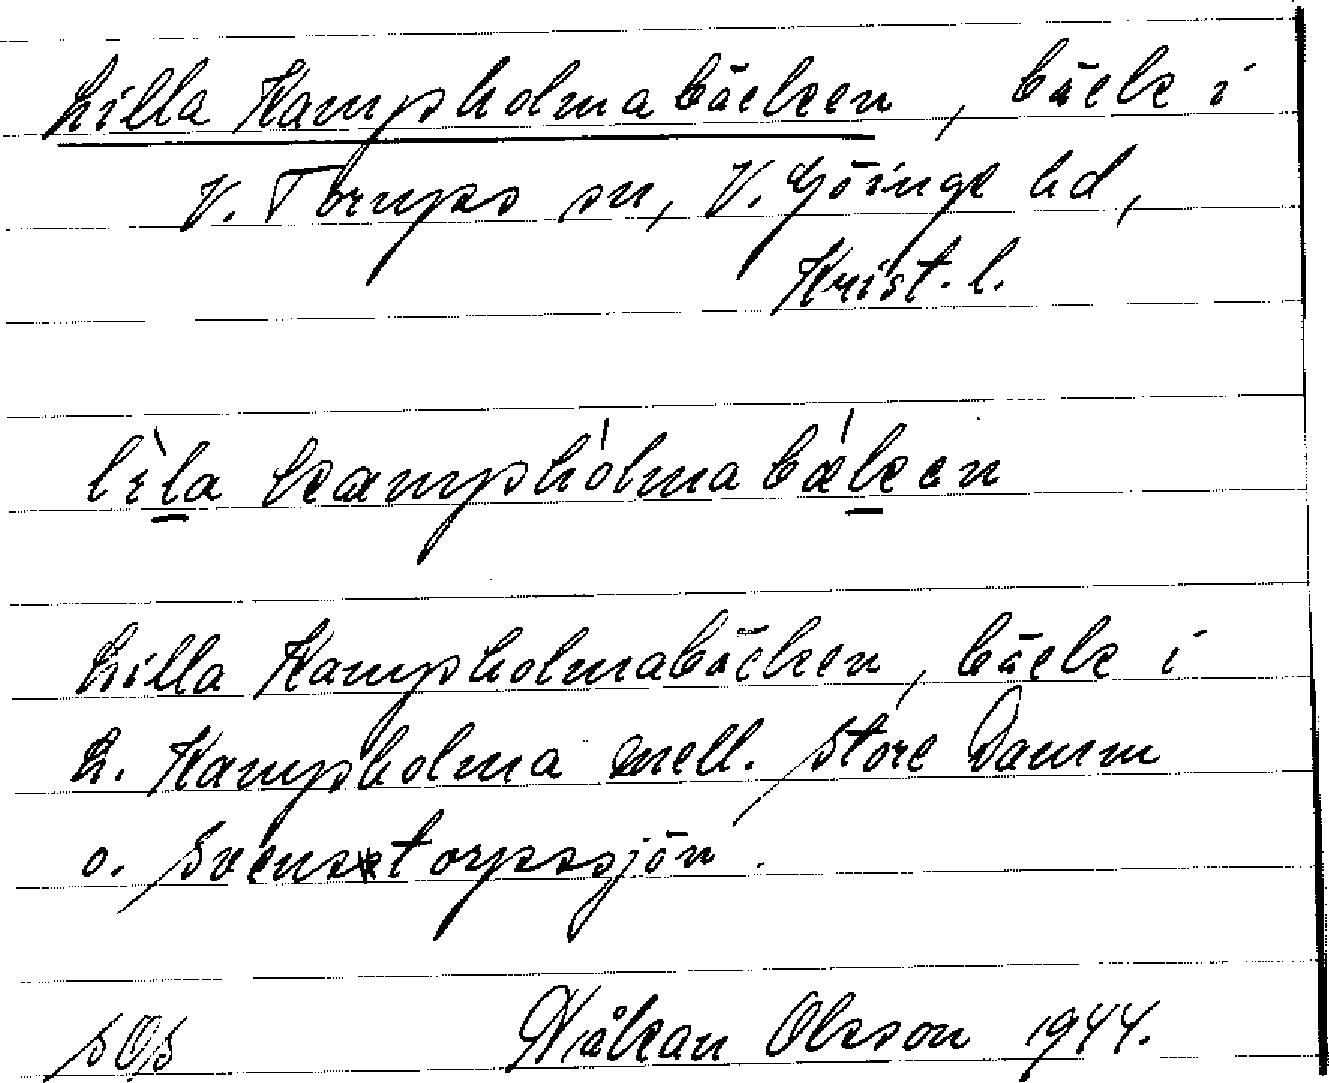 Lilla Kampholmabäcken, bäck i
V. Torups sn, V. Göinge hd,
Krist. l.
lìla kamphólmabǽken
Lilla Kampholmabäcken, bäck i
L. Kampholma mell. Store Damm
o. Svenstorpssjön.
SOS Håkan Olsson 1944.